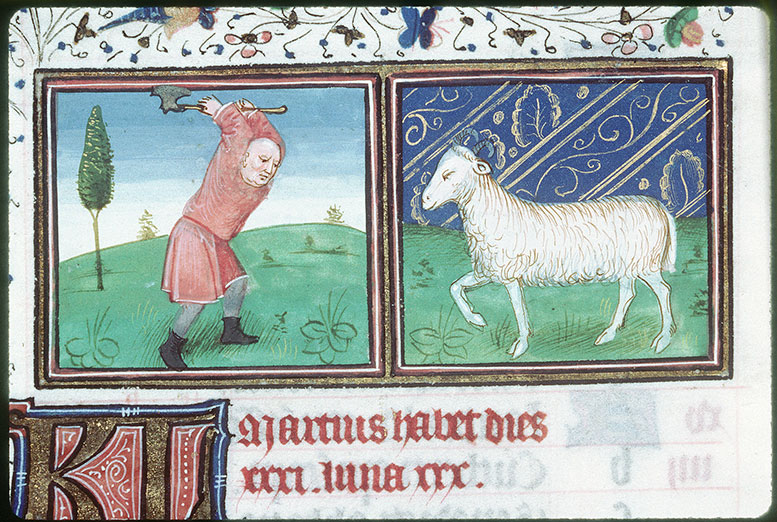 KL
Martius habet dies
xxxi. luna xxx.